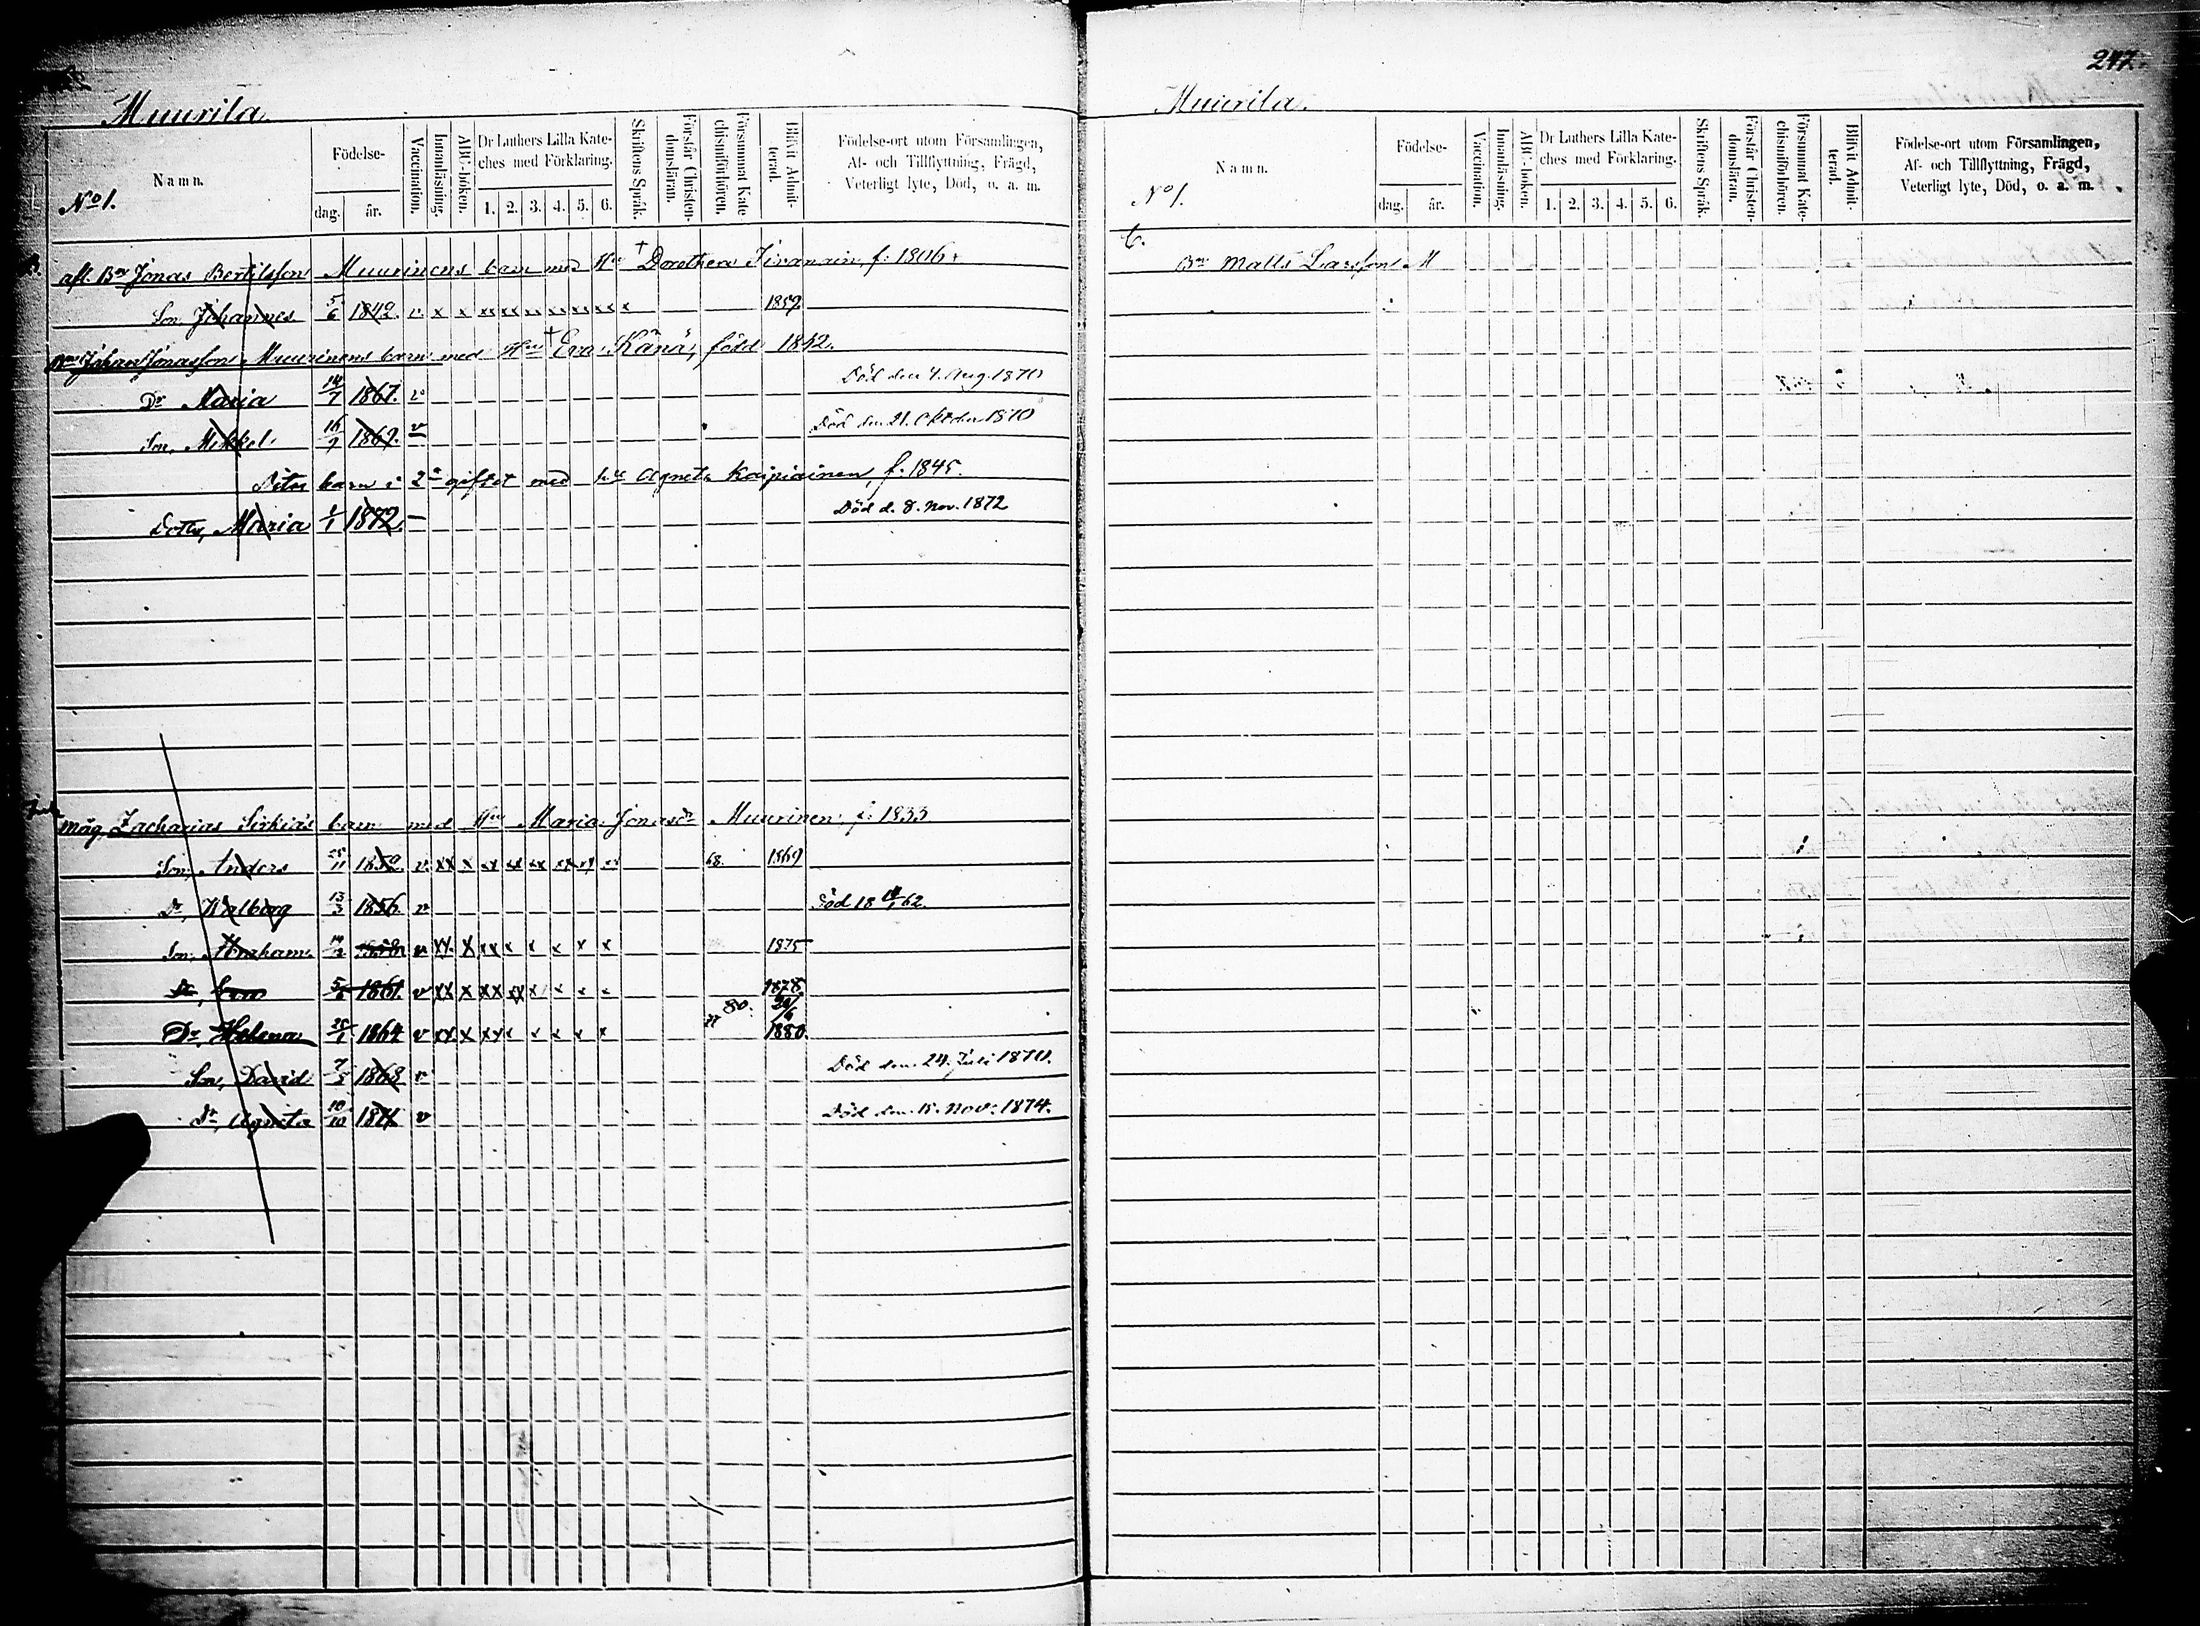 Muurila.
No 1.
Namn.
Födelse-
dag.
år.
Vaccination.
Innanläsning.
ABC-boken.
Dr Luthers Lilla Kate-
ches med Förklaring.
1. 2. 3. 4. 5. 6.
Skriftens Språk.
Förstår Christen-
domsläran.
Försummat Kate-
chismiförhören.
Blifvit Admit-
terad.
Födelse-ort utom Församlingen,
Af- och Tillflyttning, Frägd,
Veterligt lyte, Död, o. a. m.
afl. Bn Jonas Bertilsson Muurinens barn med Hu † Dorothea f. 1806.
Son, Johannes 5/6 1842. v x x xx xx xx xx xx xx x 1859.
Bn Johan Jonasson Muurinens barn med Hu † Eva Känä, född 1842.
Dr Maria 14/7 1867. v Död den 4. Aug. 1870
Son, Mikkel 16/9 1869. v Död den 21. Oktober 1870
barn i 2a giftet med hu Agneta Kaipiainen, f. 1845.
Dotter, Maria 1/1 1872. — Död d. 8. Nov. 1872
Måg, Zacharias Sirkiäs barn med Hu Maria Jonasdr Muurinen f. 1833
Son, Anders 25/11 1852. v. xx x xx xx xx xx xx xx 68. 1869
Dr, Walborg 13/3 1856. v Död 18 /62.
Son, Abraham 1858 v xx. x xx x x x x x 1875
Dr, Eva 1861. v xx x xx xx x x x x 1878
Dr, Helena 1864 v xx. x xx x x x x x 80. 1880.
Son, David 7/5 1868 v Död den 24. Juli 1870.
Dr, Agneta 10/10 1871 v Död den 15. Nov: 1874.
247.
Muurila.
No 1.
Namn.
Födelse-
dag.
år.
Vaccination.
Innanläsning.
ABC-boken.
Dr Luthers Lilla Kate-
ches med Förklaring.
1. 2. 3. 4. 5. 6.
Skriftens Språk.
Förstår Christen-
domsläran.
Försummat Kate-
chismiförhören.
Blifvit Admit-
terad.
Födelse-ort utom Församlingen,
Af- och Tillflyttning, Frägd,
Veterligt lyte, Död, o. a. m.
C.
Bn Matts Larsson M